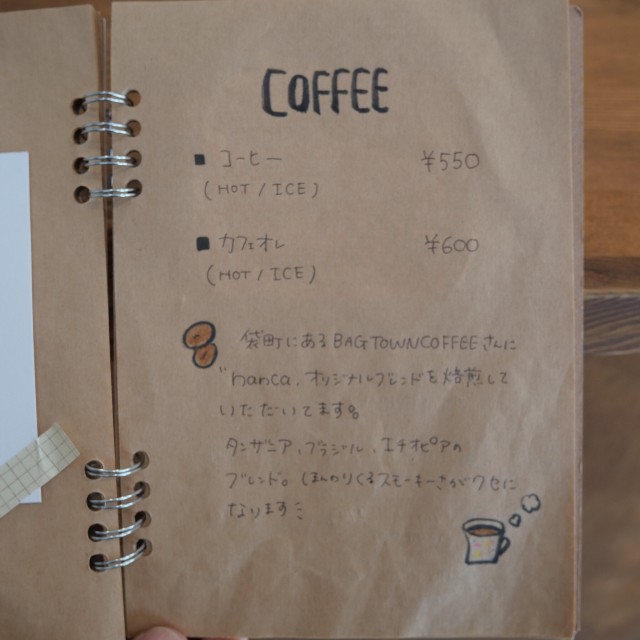 COFFEE
■ コーヒー ¥550
(HOT / ICE)
■ カフェオレ ¥600
(HOT / ICE)
袋町にあるBAGTOWNCOFFEEさんに
"nanca„オリジナルブレンドを焙煎して
いただいてます。
タンザニア、ブラジル、エチオピアの
ブレンド。ほんのりくるスモーキーさがクセに
なります